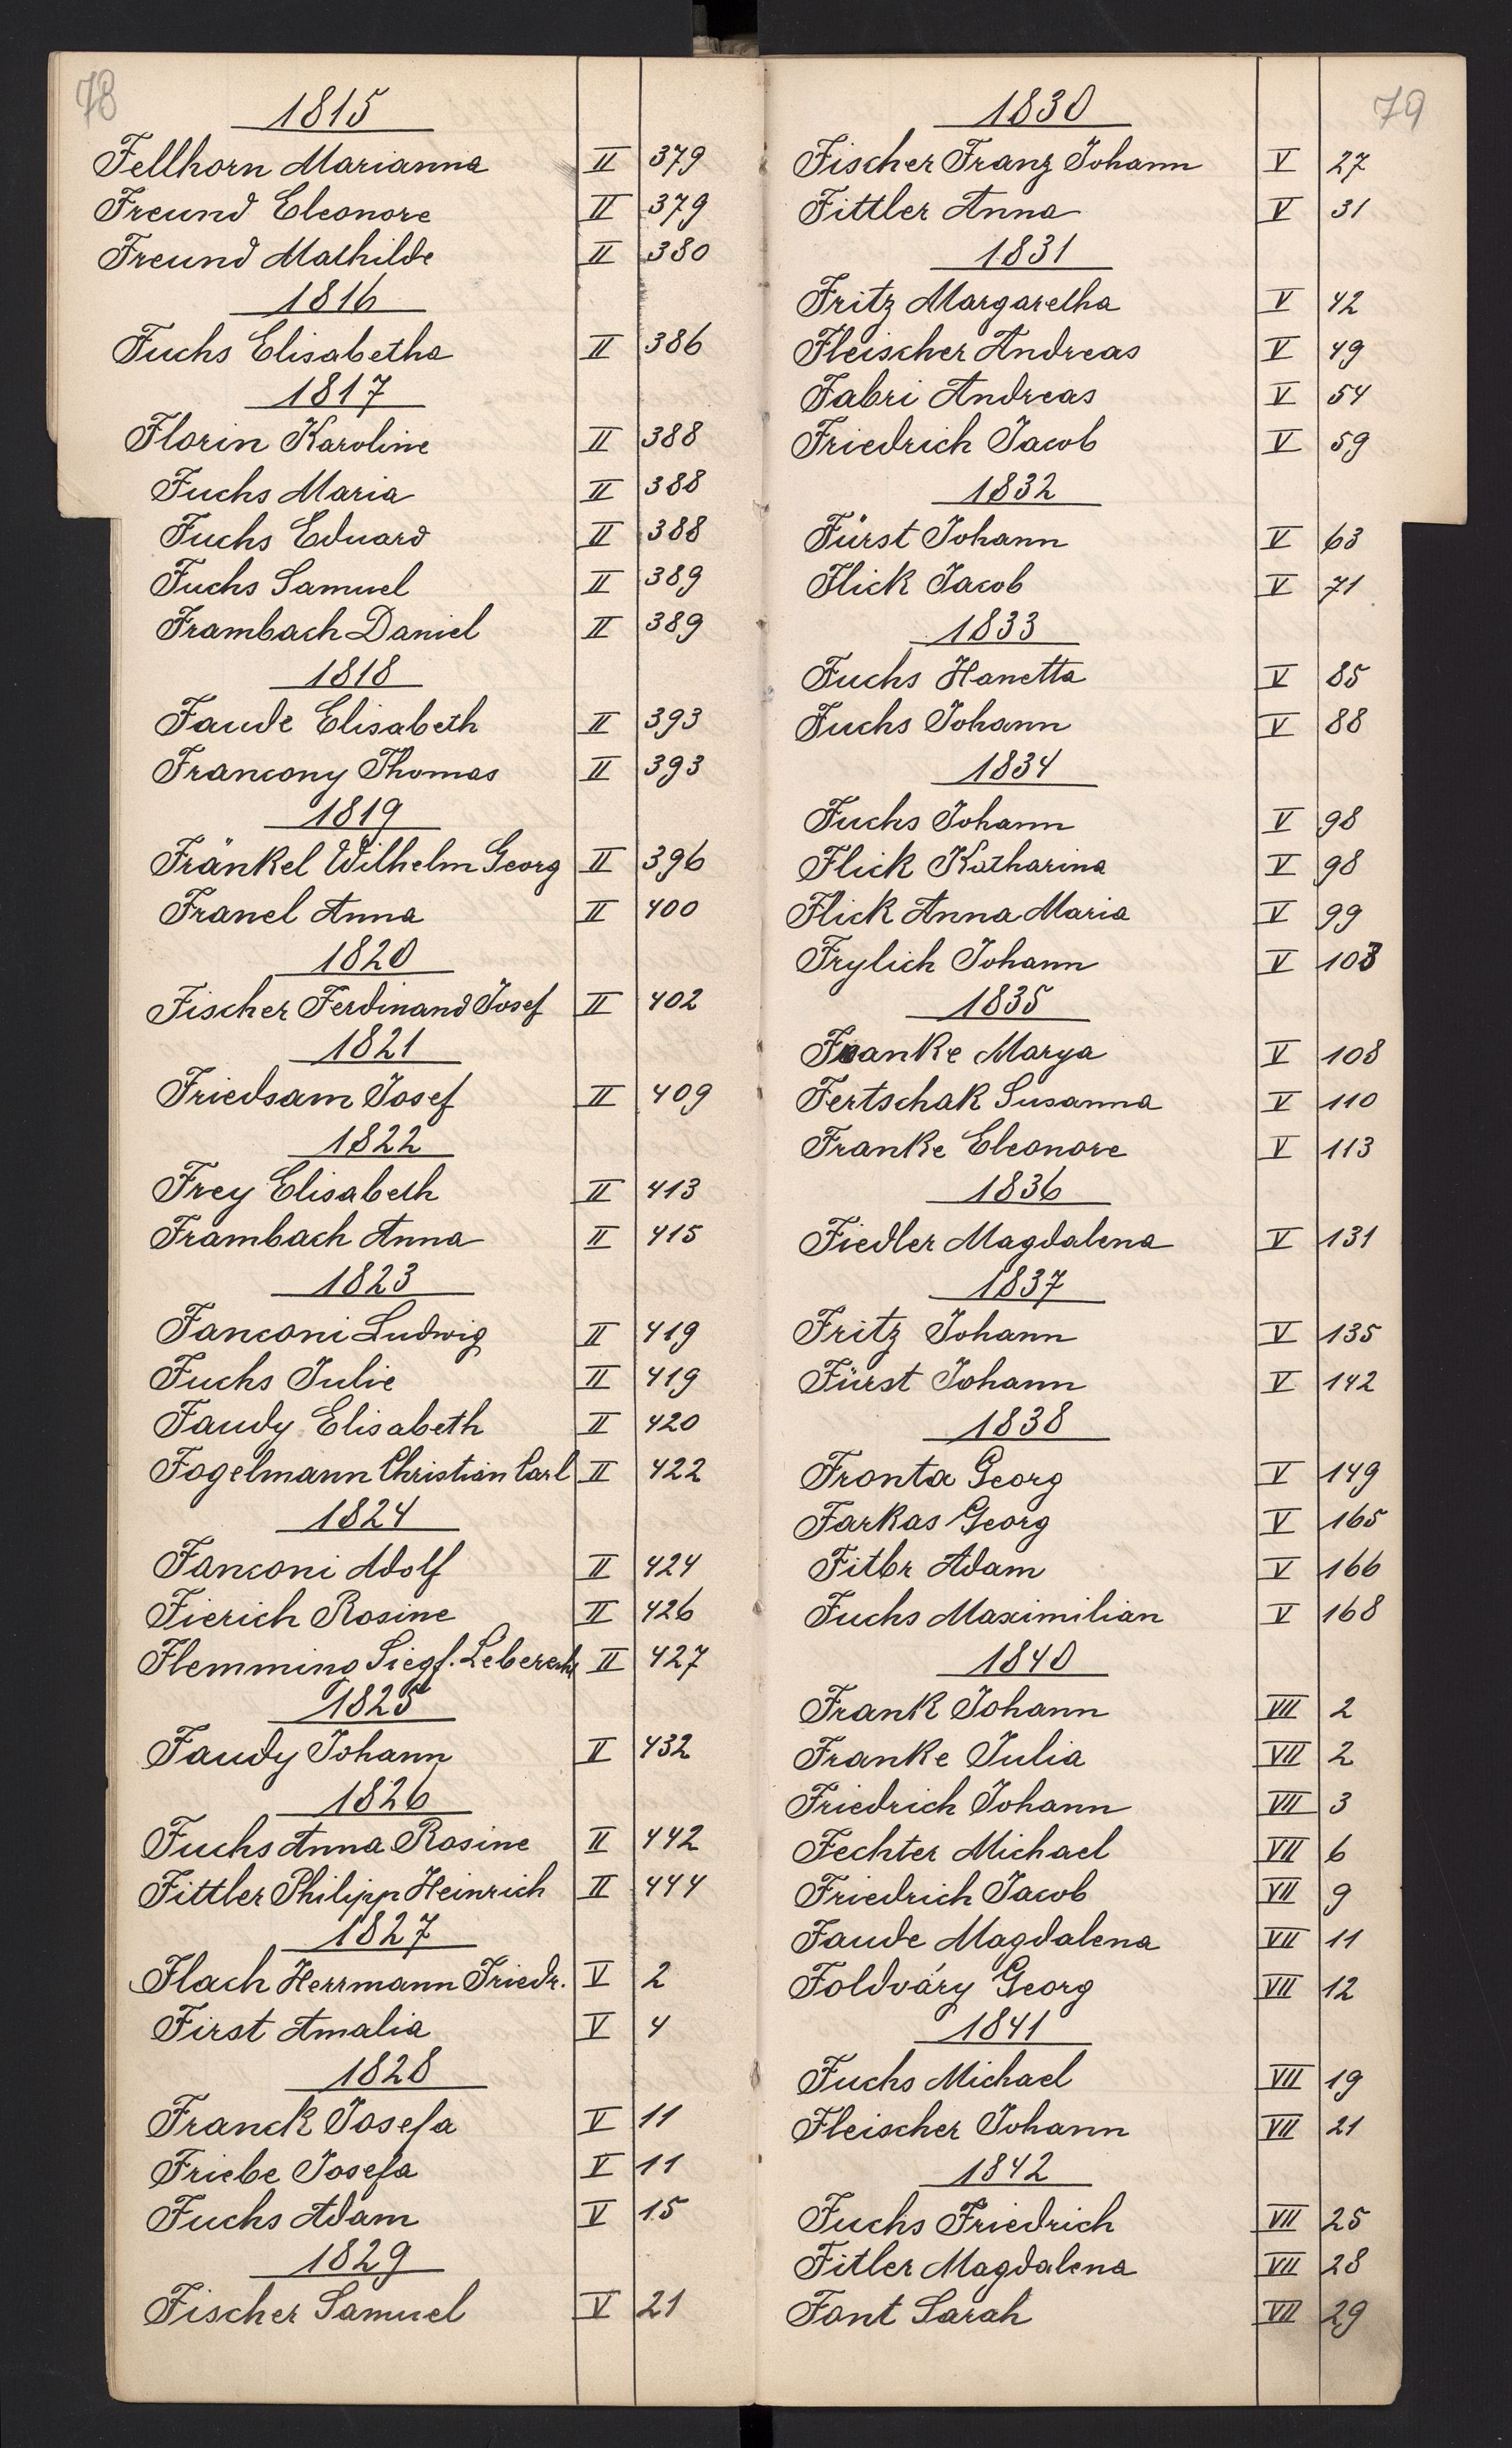 78
1815
Fellhorn Marianna II 379
Freund Eleonore II 379
Freund Mathilde II 380
1816
Fuchs Elisabetha II 386
1817
Florin Karoline II 388
Fuchs Maria II 388
Fuchs Eduard II 388
Fuchs Samuel II 389
Frambach Daniel II 389
1818
Faude Elisabeth II 393
Francony Thomas II 393
1819
Fränkel Wilhelm Georg II 396
Franel Anna II 400
1820
Fischer Ferdinand Josef II 402
1821
Friedsam Josef II 409
1822
Frey Elisabeth II 413
Frambach Anna II 415
1823
Fanconi Ludwig II 419
Fuchs Julie II 419
Faudy Elisabeth II 420
Fogelmann Christian Carl II 422
1824
Fanconi Adolf II 424
Fierich Rosine II 426
Flemming Siegf. Leberecht II 427
1825
Faudy Johann II 432
1826
Fuchs Anna Rosine II 442
Fittler Philipp Heinrich II 444
1827
Flach Herrmann Friedr. V 2
First Amalia V 4
1828
Franck Josefa V 11
Friebe Josefa V 11
Fuchs Adam V 15
1829
Fischer Samuel V 21
79
1830
Fischer Franz Johann V 27
Fittler Anna V 31
1831
Fritz Margaretha V 42
Fleischer Andreas V 49
Fabri Andreas V 54
Friedrich Jacob V 59
1832
Fürst Johann V 63
Flick Jacob V 71
1833
Fuchs Hanetta V 85
Fuchs Johann V 88
1834
Fuchs Johann V 98
Flick Katharina V 98
Flick Anna Maria V 99
Frylich Johann V 103
1835
Franke Marya V 108
Fertschak Susanna V 110
Franke Eleonore V 113
1836
Fiedler Magdalena V 131
1837
Fritz Johann V 135
Fürst Johann V 142
1838
Fronta Georg V 149
Farkas Georg V 165
Fitbr Adam V 166
Fuchs Maximilian V 168
1840
Frank Johann VII 2
Franke Julia VII 2
Friedrich Johann VII 3
Fechter Michael VII 6
Friedrich Jacob VII 9
Faude Magdalena VII 11
Foldváry Georg VII 12
1841
Fuchs Michael VII 19
Fleischer Johann VII 21
1842
Fuchs Friedrich VII 25
Fitler Magdalena VII 28
Font Sarah VII 29